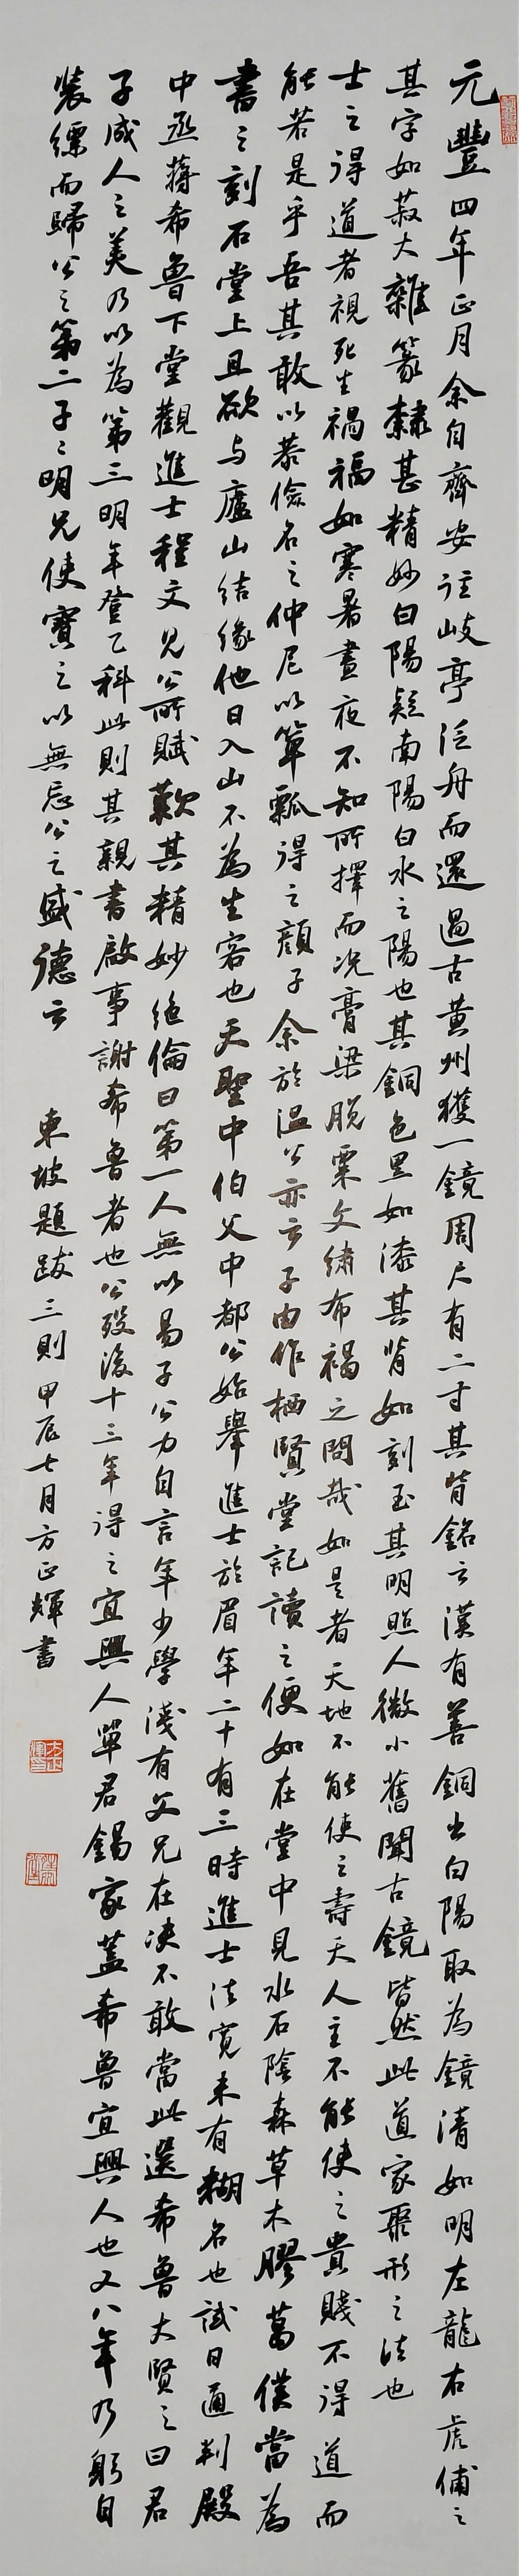 元豐四年正月余自齊安往岐亭泛舟而還過古黃州獲一鏡周尺有二寸其背銘云漢有善銅出白陽取為鏡清如明左龍右虎俌之
其字如菽大雜篆隸甚精妙白陽疑南陽白水之陽也其銅色黑如漆其背如刻玉其明照人微小舊聞古鏡皆然此道家聚形之法也
士之得道者視死生禍福如寒暑晝夜不知所擇而況膏粱脫粟文繡布褐之間哉如是者天地不能使之壽夭人主不能使之貴賤不得道而
能若是乎吾其敢以恭儉名之仲尼以簞瓢得之顏子余於溫公亦云子由作棲賢堂記讀之便如在堂中見水石陰森草木膠葛僕當為
書之刻石堂上且欲與廬山結緣他日入山不為生客也天聖中伯父中都公始舉進士於眉年二十有三時進士法寬未有糊名也試日通判殿
中丞蔣希魯下堂觀進士程文見公所賦歎其精妙絕倫曰第一人無以易子公力自言年少學淺有父兄在決不敢當此選希魯大賢之曰君
子成人之美乃以為第三明年登乙科此則其親書啟事謝希魯者也公歿後十三年得之宜興人單君錫家蓋希魯宜興人也又八年乃躬自
裝縹而歸公之第二子子明兄使寶之以無忘公之盛德云 東坡題跋三則 甲辰七月方正輝書